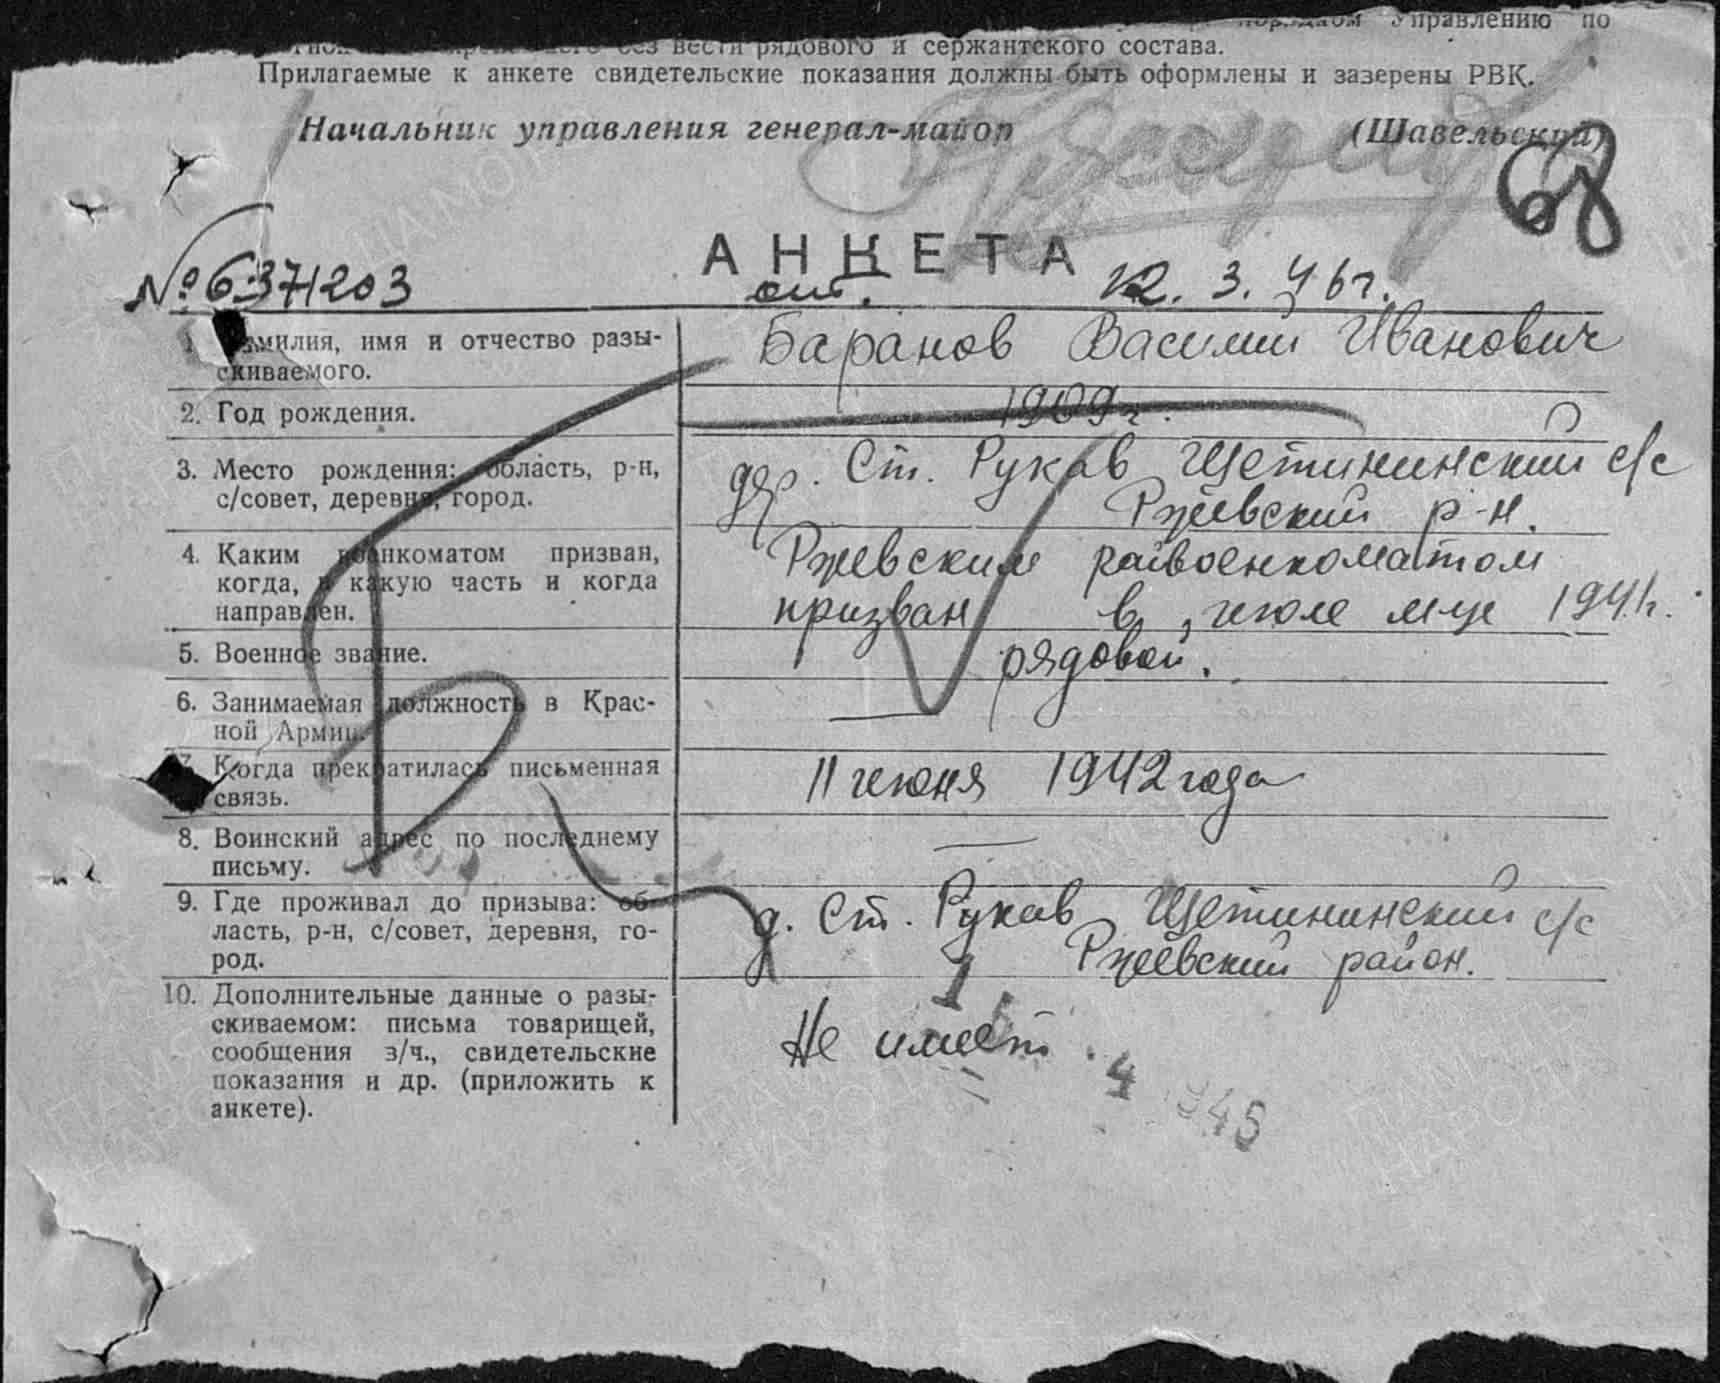 Управлению по
без вести рядового и сержантского состава.
Прилагаемые к анкете свидетельские показания должны быть оформлены и зазерены РВК.
Начальник управления генерал-майор (Шавельский)
68
АНКЕТА
№ 637/203 от. 12. 3. 46 г.
1. Фамилия, имя и отчество разы-
скиваемого.
Баранов Василий Иванович
2. Год рождения.
1909 г.
3. Место рождения: область, р-н,
с/совет, деревня, город.
дер. Ст. Рукав Щетининский с/с
Ржевский р-н.
4. Каким военкоматом призван,
когда, в какую часть и когда
направлен.
Ржевским райвоенкоматом
призван в июле м-це 1941 г.
5. Военное звание.
рядовой.
6. Занимаемая должность в Крас-
ной Армии.
—
7. Когда прекратилась письменная
связь.
11 июня 1942 года
8. Воинский адрес по последнему
письму.
—
9. Где проживал до призыва: об-
ласть, р-н, с/совет, деревня, го-
род.
д. Ст. Рукав Щетининский с/с
Ржевский район.
10. Дополнительные данные о разы-
скиваемом: письма товарищей,
сообщения з/ч., свидетельские
показания и др. (приложить к
анкете).
Не имеет.